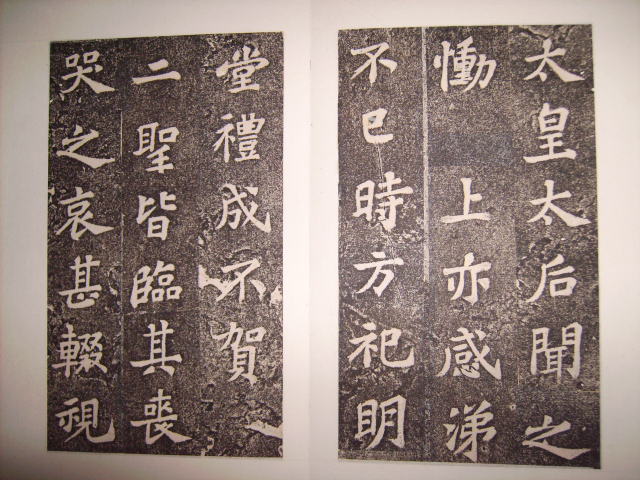 太皇太后聞之
慟 上亦感涕
不已時方祀明
堂禮成不賀
二聖皆臨其喪
哭之哀甚輟視